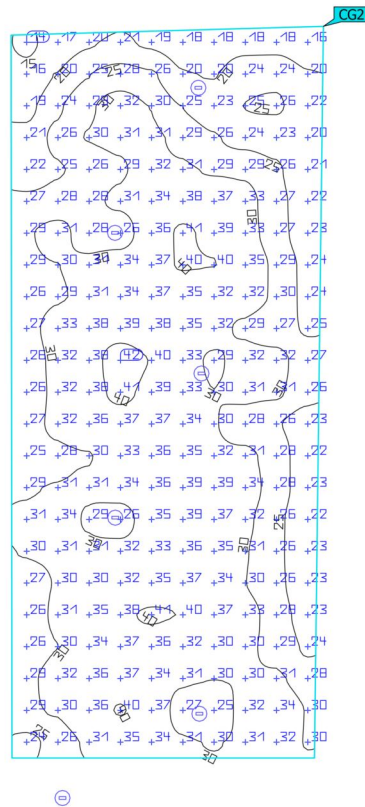 CG2
14 17 20 21 19 18 18 18 18 16
15
16 20 25 28 26 20 20 24 24 20
20 25 20
19 24 28 32 30 25 23 25 26 22
30 25
21 26 30 31 31 29 26 24 23 20
22 25 26 29 32 31 29 29 26 21
25
27 28 28 31 34 38 37 33 27 22
30
29 31 28 26 36 41 39 33 27 23
29 30 31 34 37 40 40 35 29 24
30 40
26 29 31 34 37 35 32 32 30 24
27 33 38 39 38 35 32 29 27 25
28 32 38 42 40 33 29 32 32 27
30
26 32 38 41 39 33 30 31 31 26
40 30 30
27 32 36 37 37 34 30 28 26 23
25 28 30 33 36 35 32 31 28 22
29 31 31 34 36 39 39 34 28 23
31 34 29 26 35 39 37 32 26 22
25
30 31 31 32 33 36 35 31 26 23
30 30
27 30 30 32 35 37 34 30 26 23
26 31 35 38 41 40 37 33 28 23
40
26 30 34 37 36 32 30 30 29 24
30
28 32 36 37 34 31 30 30 31 28
29 30 36 40 37 27 25 32 34 30
40
25 26 31 35 34 30 27 31 32 30
25 30